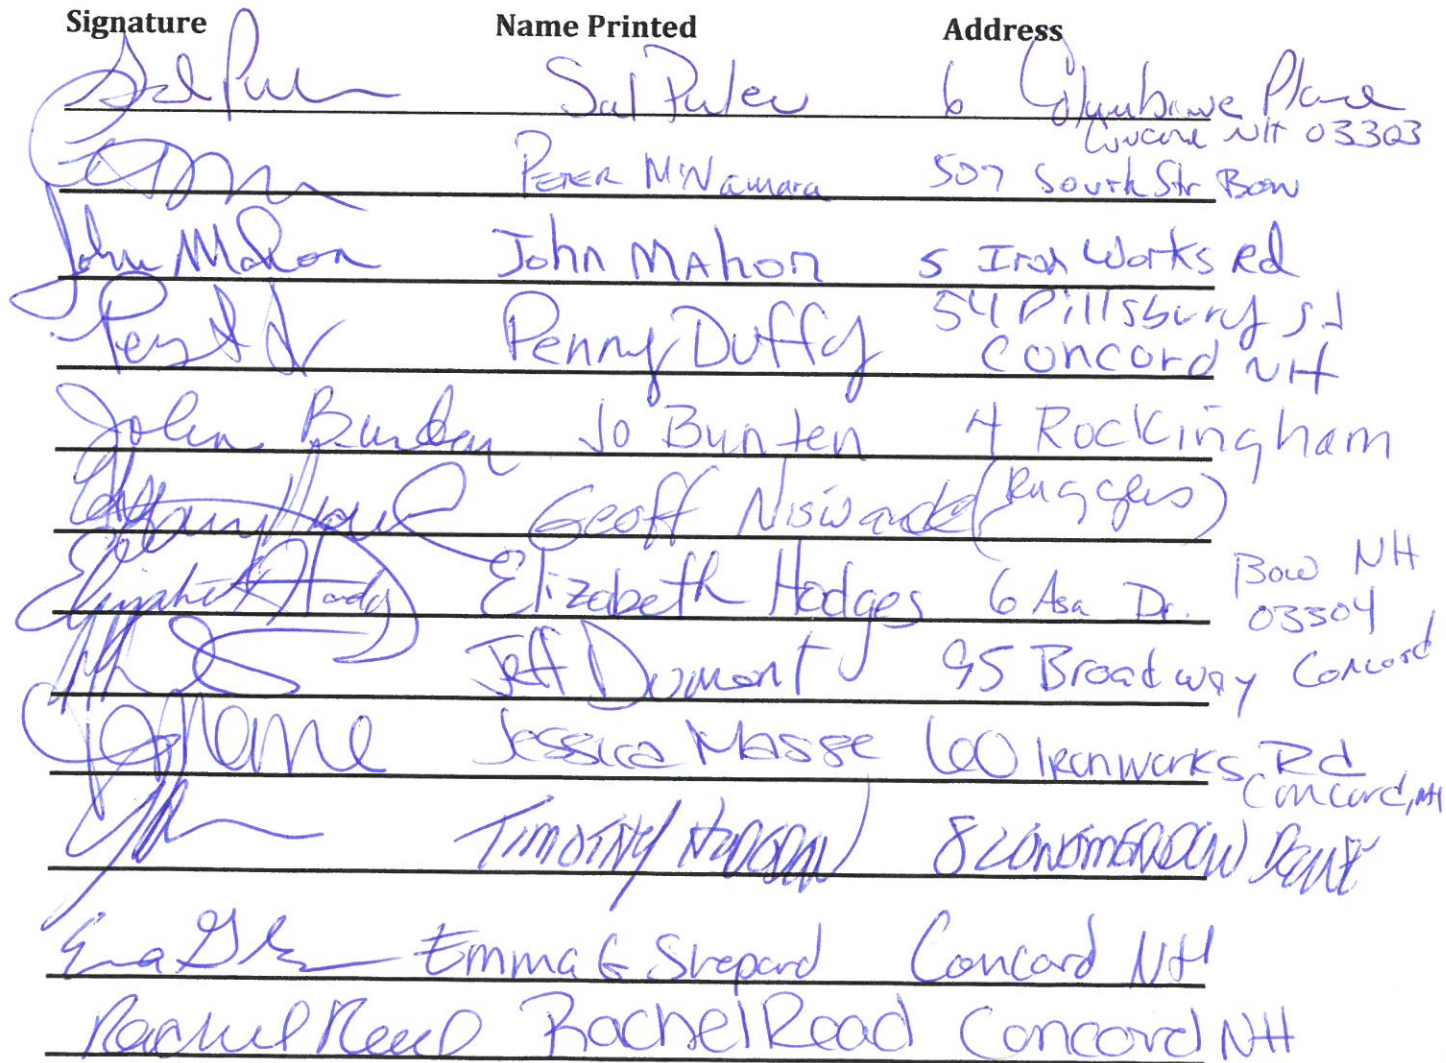 Signature Name Printed Address
Sal 6 Columbine Place
Concord NH 03303
Peter McNamara 507 South Str Bow
John Mahon John MAhon 5 Iron Works Rd
Penny Duffy 54 Pillsbury St
Concord NH
Jo Bunten 4 Rockingham
Geoff (Ruggles)
Elizabeth Hodges Elizabeth Hodges 6 Asa Dr. Bow NH
03304
Jeff Dumont 95 Broadway Concord
Jessica Masse 60 Ironworks Rd
Concord, NH
TIMOTHY 8 LONGMEADOW DRIVE
Emma G Shepard Concord NH
Rachel Read Rachel Read Concord NH